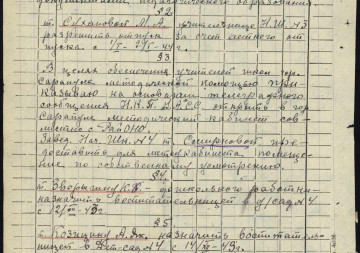 §2
т. Сухановой М. А. учительнице Н.Ш. №3
разрешить отпуск за счет летнего от-
пуска с
§3
В целях обеспечения учителей школ гор.
Сарапула методической помощью при-
казываю на основании телеграфного
сообщения Н.К.П. УАССР открыть в гор.
Сарапуле методический кабинет сов-
местно с РайОНО.
Завед. Нач. Шк. №4 т. Смирновой пре-
доставить для методкабинета помеще-
ние по собственному усмотрению.
§4
т. Зворыгину К.П. - дошкольного работни-
назначить воспитательницей в д/сад №4
с 12/III-43г
§5
т. А. Дм. назначить воспитатель-
ницей в Дет-сад №4 с 14/III-43г.